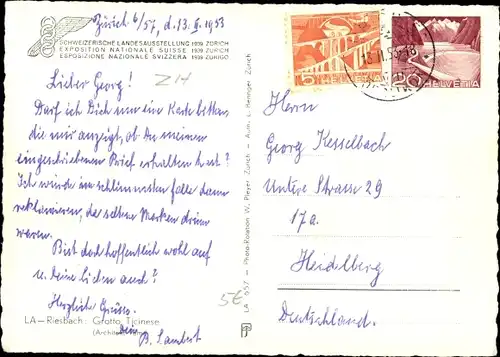 Zürich 6/57, d. 13. II. 1953
SCHWEIZERISCHE LANDESAUSSTELLUNG 1939 ZÜRICH
EXPOSITION NATIONALE SUISSE 1939 ZURICH
ESPOSIZIONE NAZIONALE SVIZZERA 1939 ZURIGO
ZH
Lieber Georg!
Darf ich Dich um eine Karte bitten,
die mir anzeigt, ob Du meinen
eingeschriebenen Brief erhalten hast?
Ich würde im schlimmsten Falle dann
reklamieren, da seltene Marken drinn
waren.
Bist doch hoffentlich wohl auf
u. Deine Lieben auch?
Herzliche Grüsse
Dein B. Lambert
5€
LA—Riesbach: Grotto Ticinese
LA 657 - Photo-Rotation W. Pleyer Zürich - Auto. L. Beringer, Zürich
5
20
HELVETIA
Herrn
Georg Kesselbach
Untere Strasse 29
17a.
Heidelberg
Deutschland.